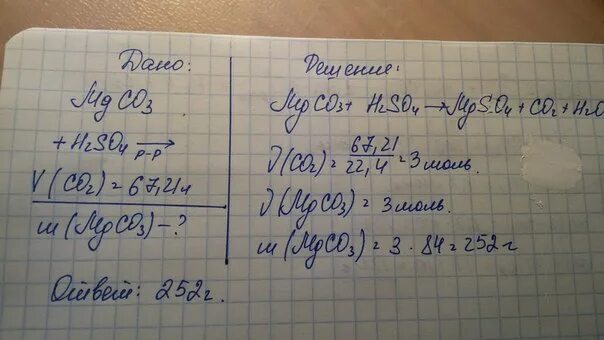 Дано:
MgCO3
+ H2SO4 →
р-р
V(CO2) = 67,21 л
m(MgCO3) - ?
Ответ: 252 г.
Решение:
MgCO3 + H2SO4 → MgSO4 + CO2 + H2O
ν(CO2) = 67,21/22,4 = 3 моль.
ν(MgCO3) = 3 моль.
m(MgCO3) = 3 · 84 = 252 г